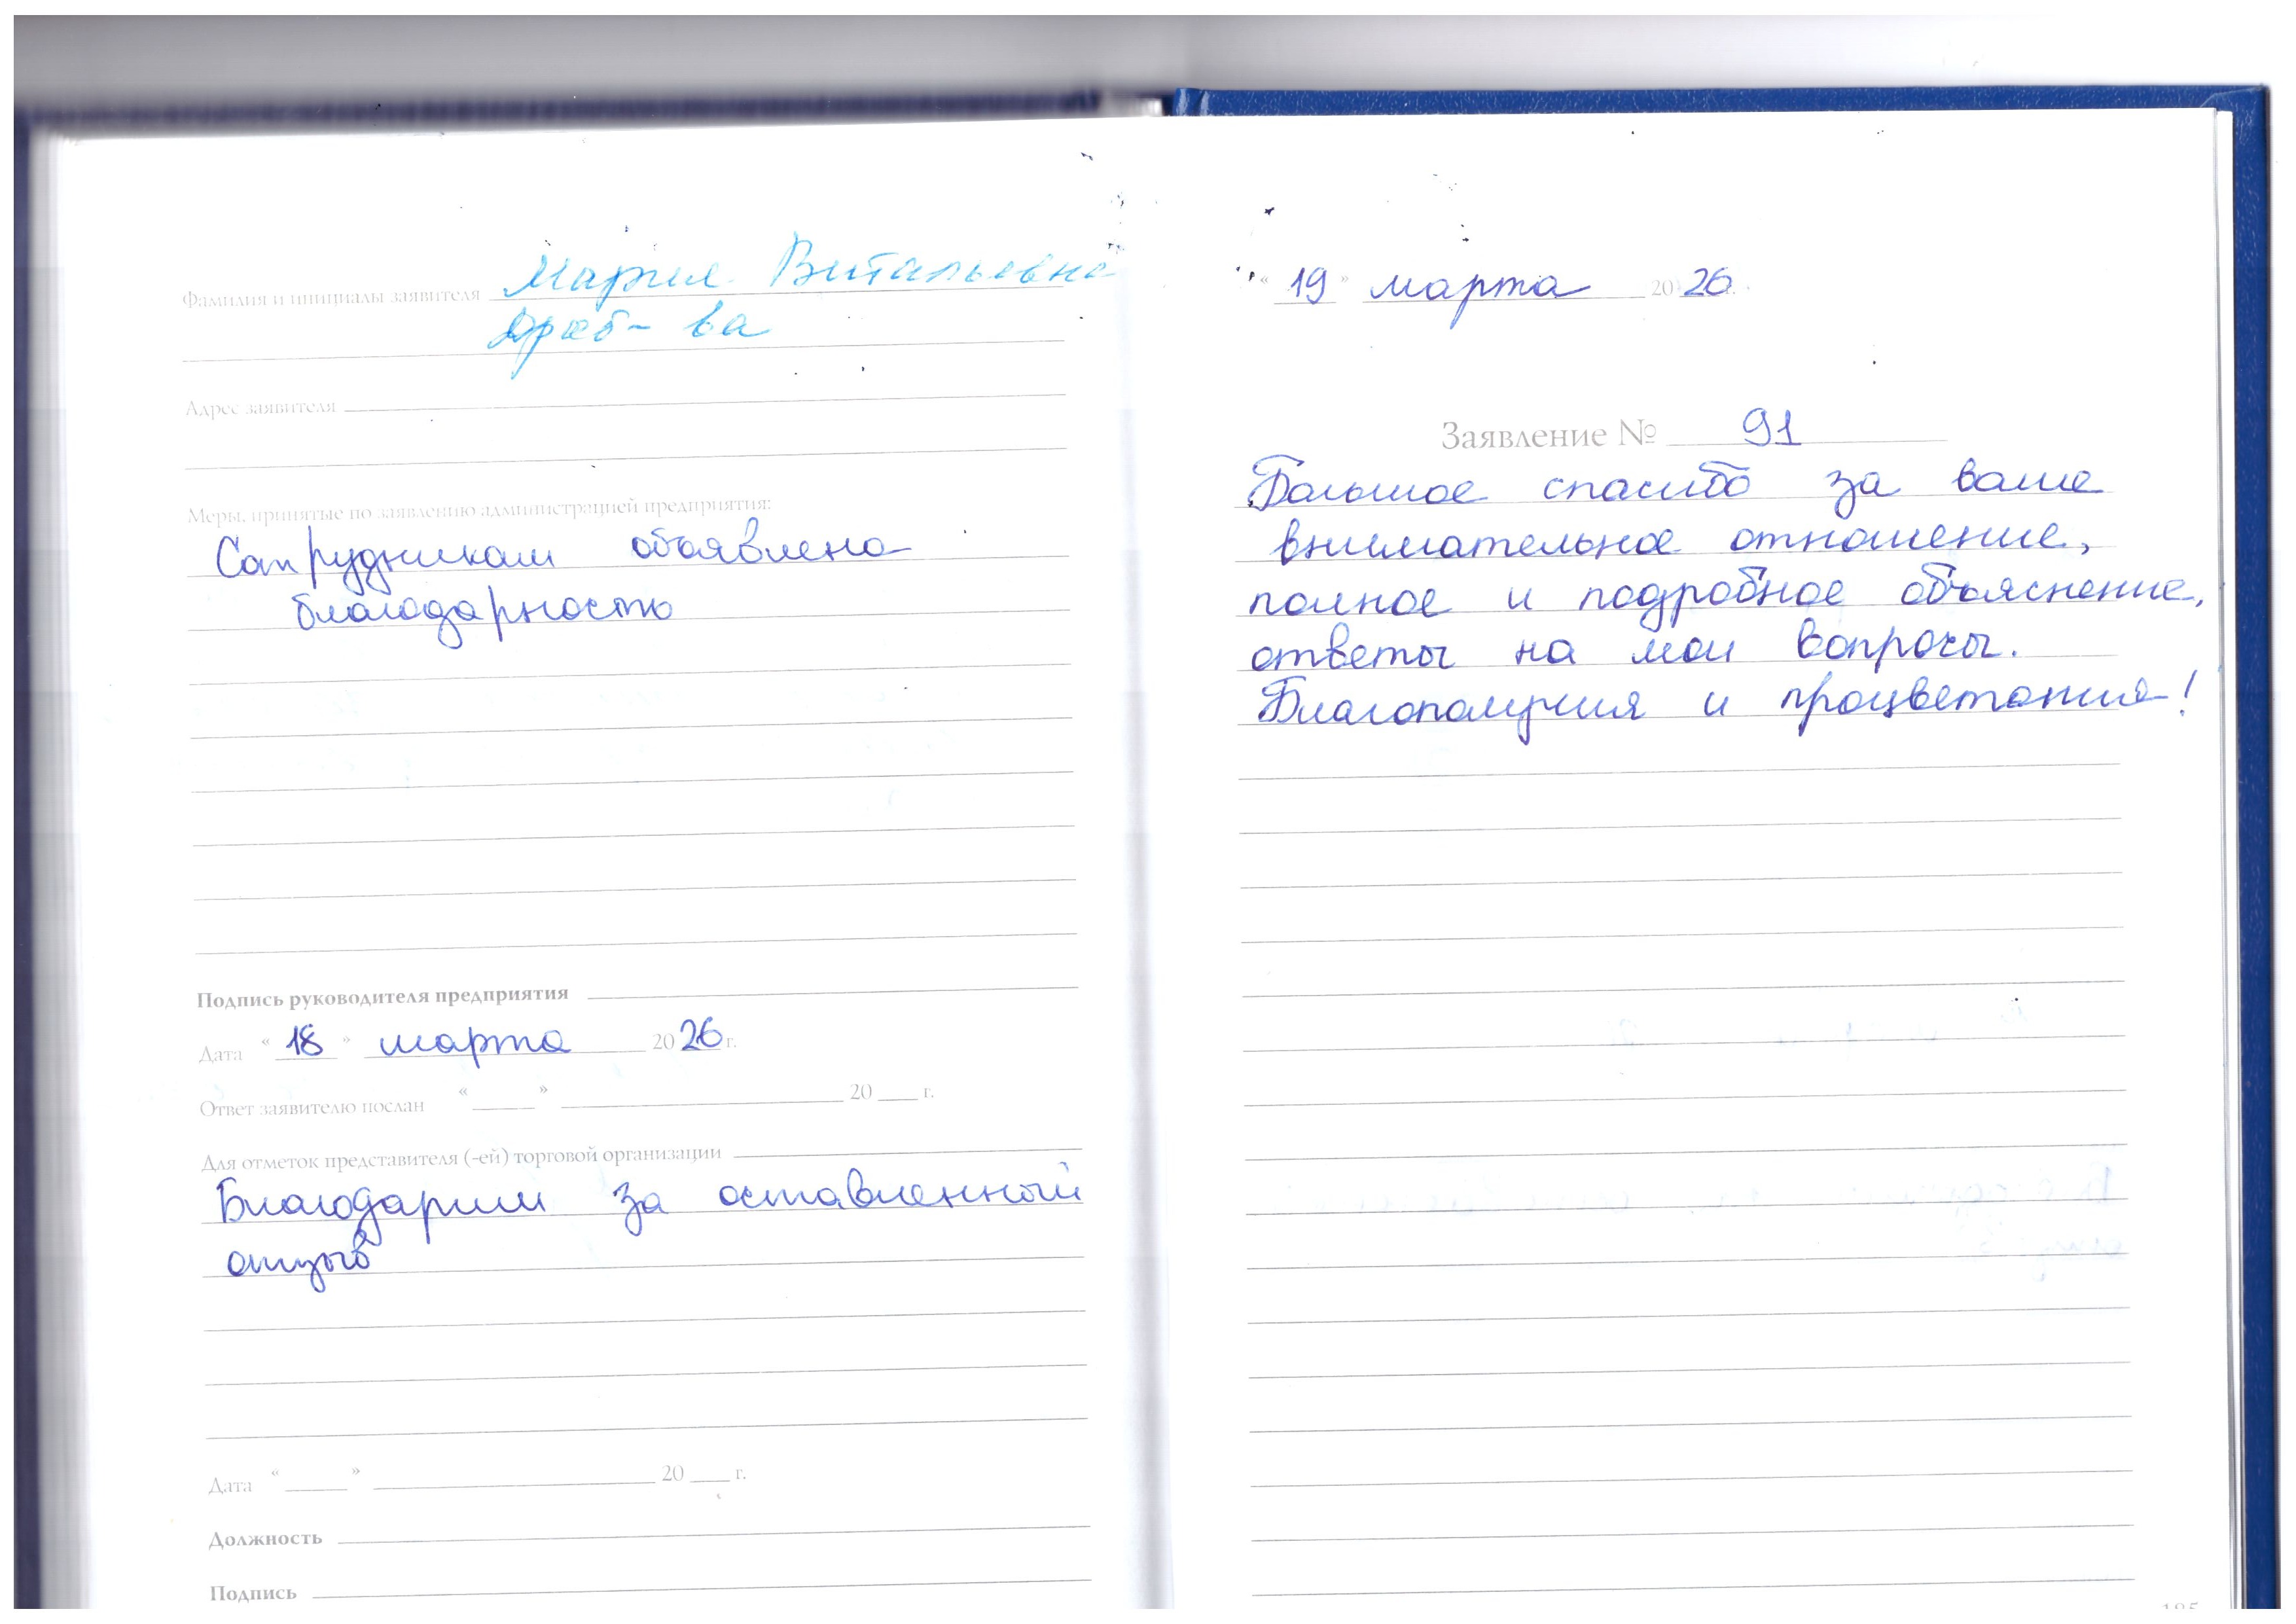 Фамилия и инициалы заявителя Мария Витальевна
Адрес заявителя
Меры, принятые по заявлению администрацией предприятия:
Сотрудникам объявлена
благодарность
Подпись руководителя предприятия
Дата "18" марта 2026 г.
Ответ заявителю послан "___" ___ 20 ___ г.
Для отметок представителя (-ей) торговой организации
Благодарим за оставленный
отзыв
Дата "___" ___ 20 ___ г.
Должность
Подпись
"19" марта 2026
Заявление № 91
Большое спасибо за ваше
внимательное отношение,
полное и подробное объяснение,
ответы на мои вопросы.
Благополучия и процветания!